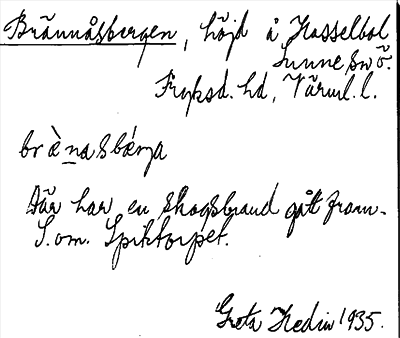 Brännåsbergen, höjd å Hasselbol
Sunne sn Ö.
Fryksd. hd, Värml. l.
brὲnasbærja
Där har en skogsbrand gått fram.
S. om Spiktorpet.
Greta Hedin 1935.